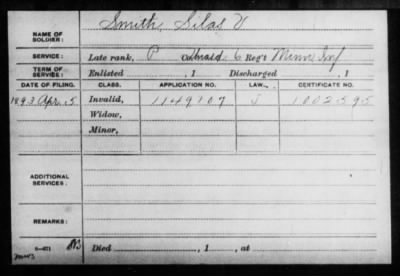 NAME OF SOLDIER: Smith, Silas V
SERVICE: Late rank, P Unas'd 6 Reg't Minn Inf
TERM OF SERVICE: Enlisted , 1 Discharged , 1
DATE OF FILING. CLASS. APPLICATION NO. LAW. CERTIFICATE NO.
1893 Apr. 5 Invalid, 1149107 J 1002595
Widow,
Minor,
ADDITIONAL SERVICES:
REMARKS:
Died , 1 , at